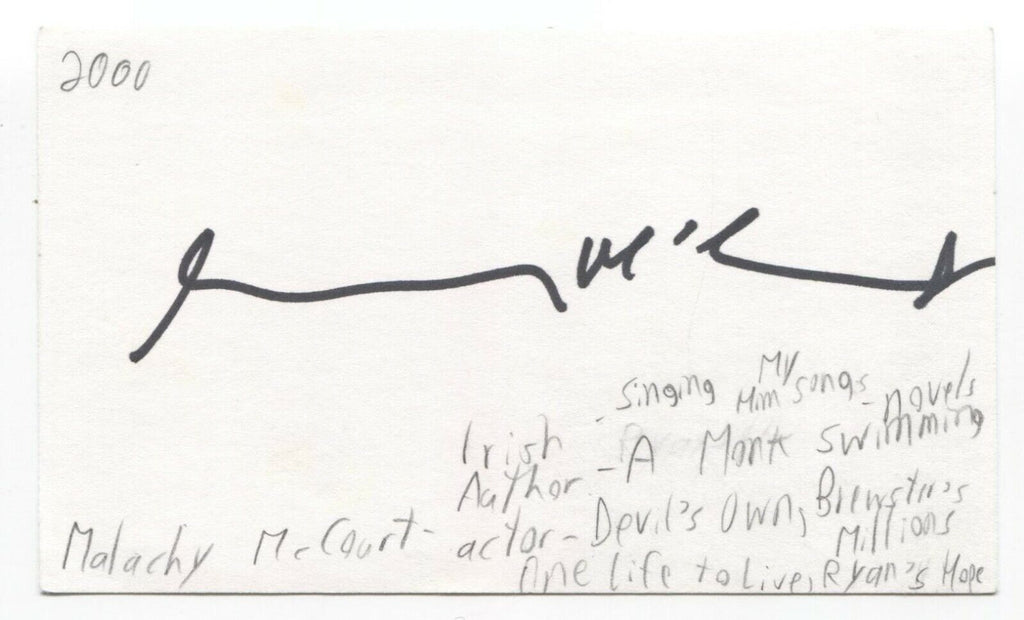 2000
Mc'C
singing My
Him songs - novels
Irish -
Author - A Monk swimming
Malachy McCourt - actor - Devil's Own, Brewster's
Millions
One Life to Live, Ryan's Hope